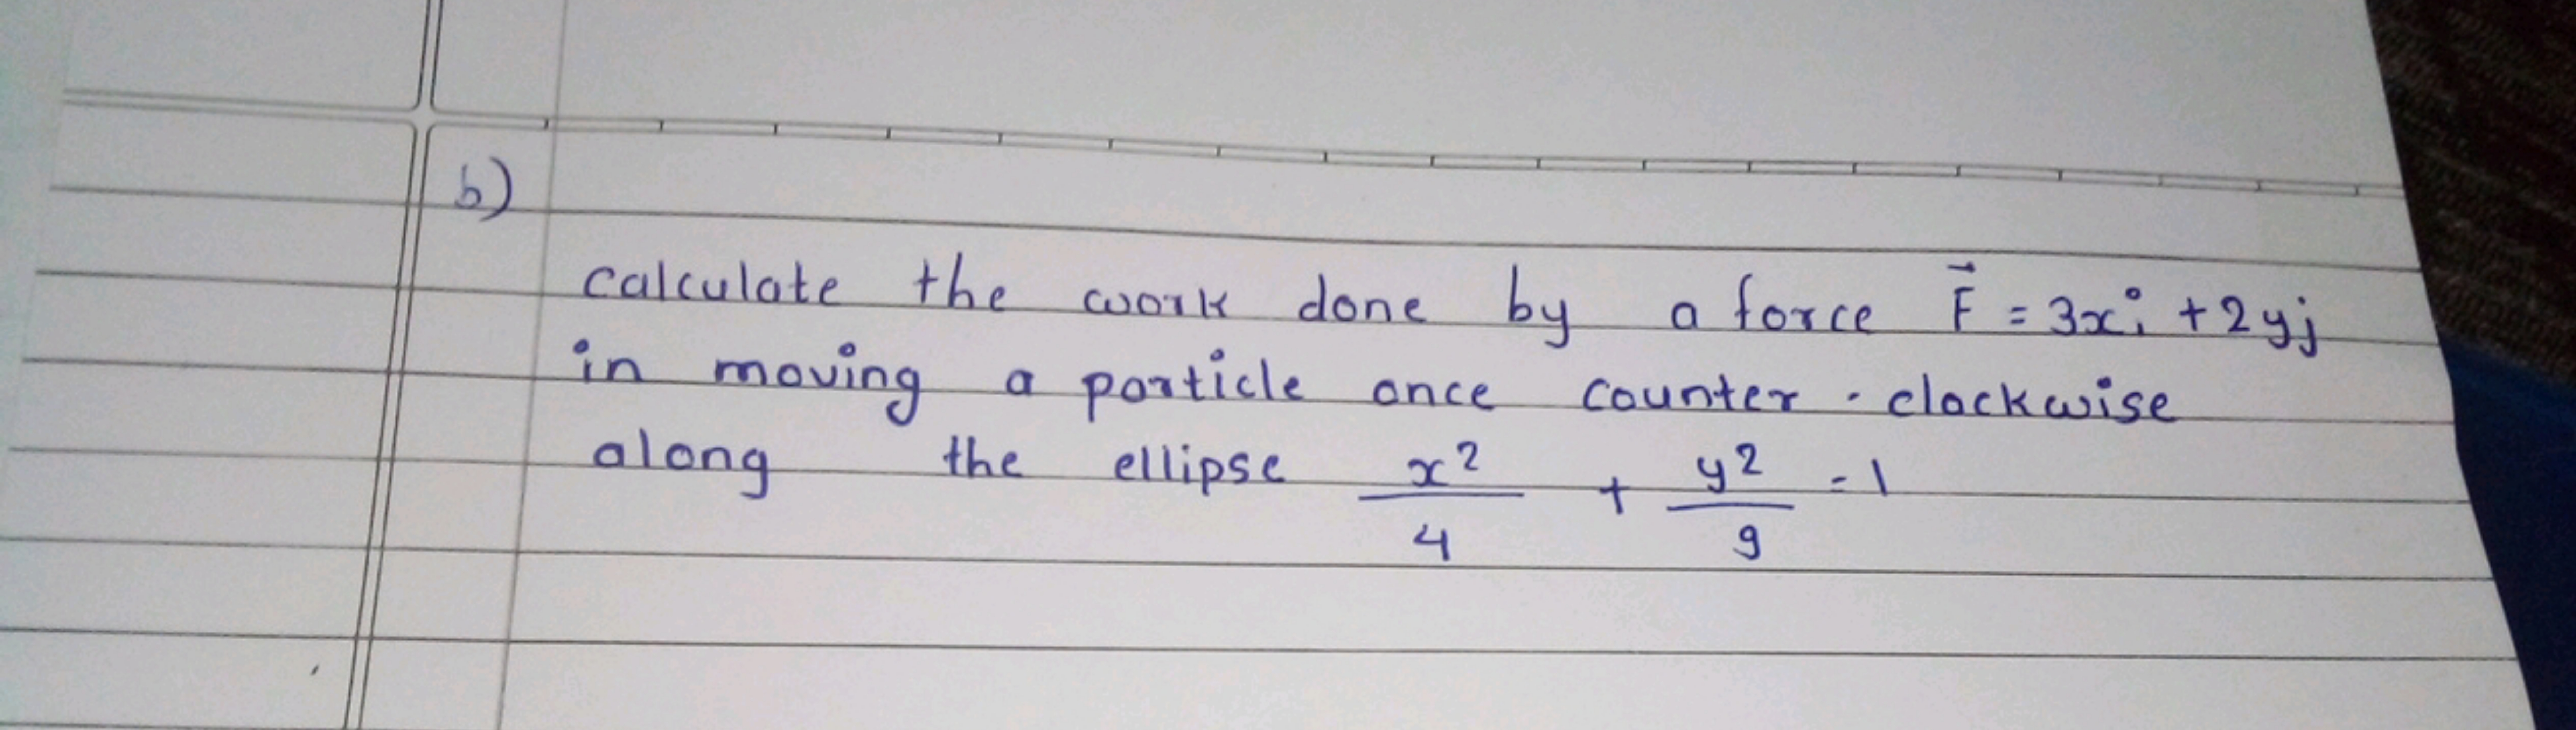 b)
calculate the work done by a force F⃗ = 3xi + 2yj
in moving a particle once counter - clockwise
along the ellipse x²/4 + y²/9 = 1